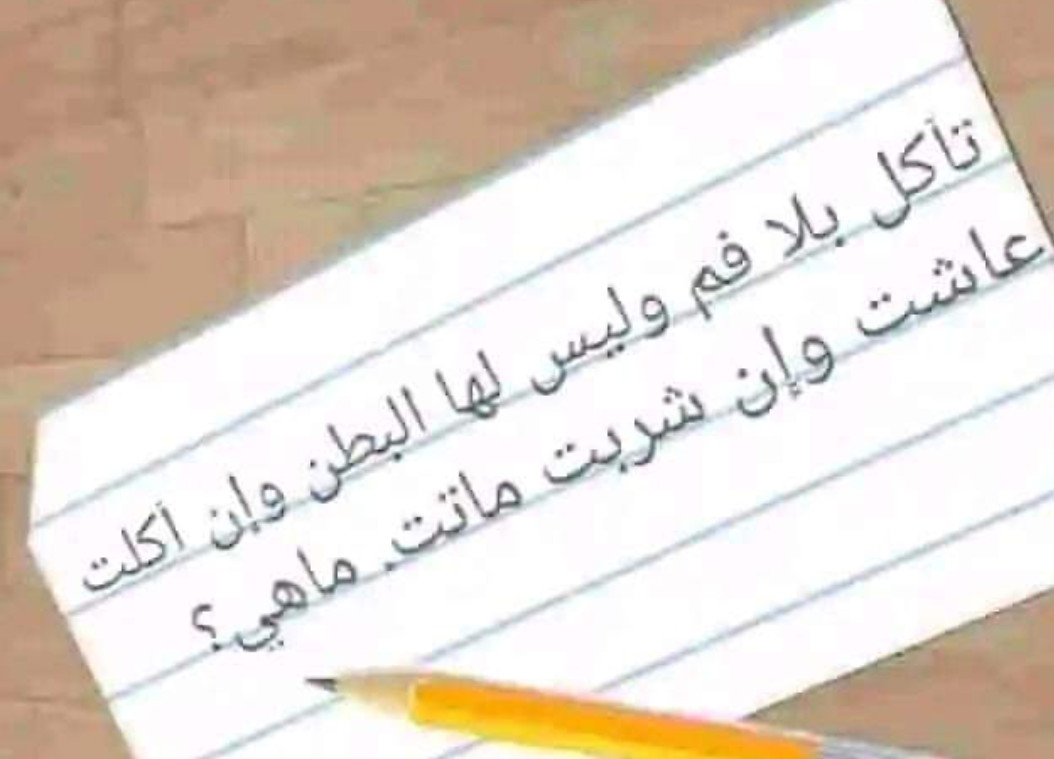 تأكل بلا فم وليس لها البطن وإن أكلت
عاشت وإن شربت ماتت. ماهي؟